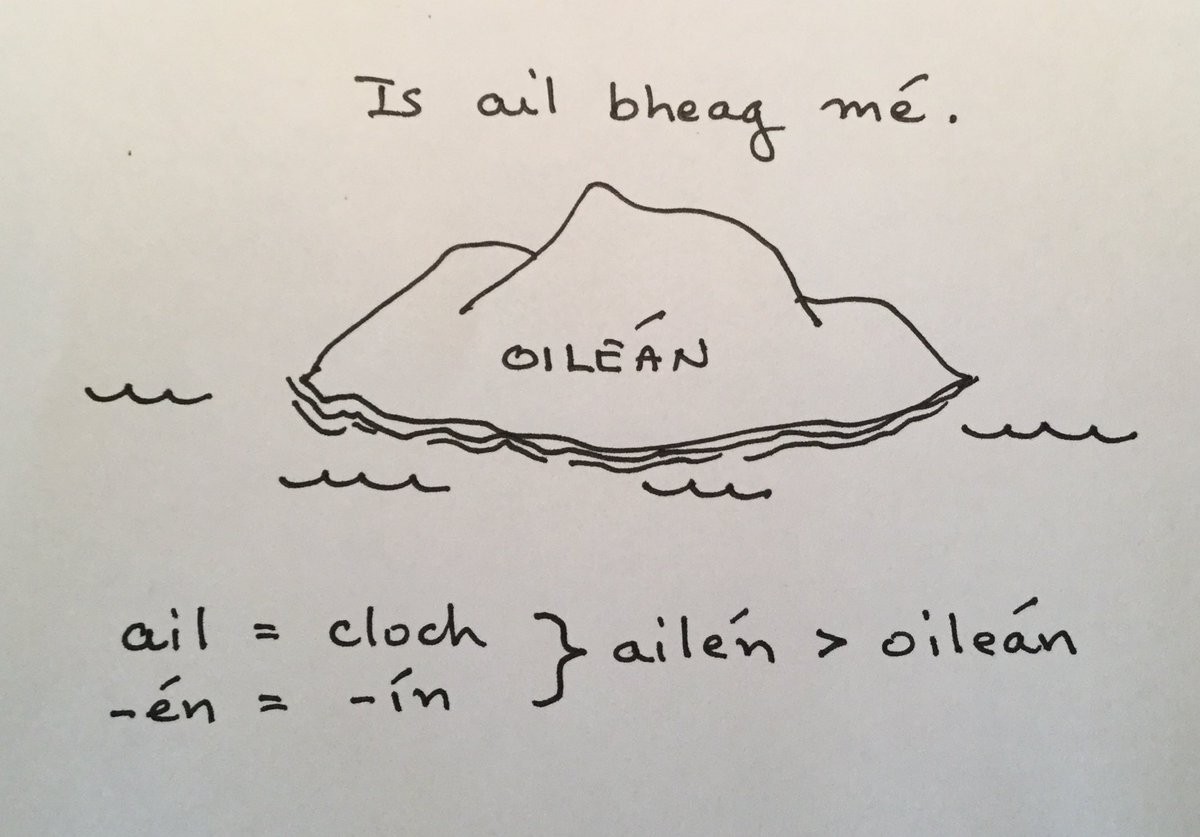 Is ail bheag mé.
OILEÁN
ail = cloch } ailén > oileán
-én = -ín